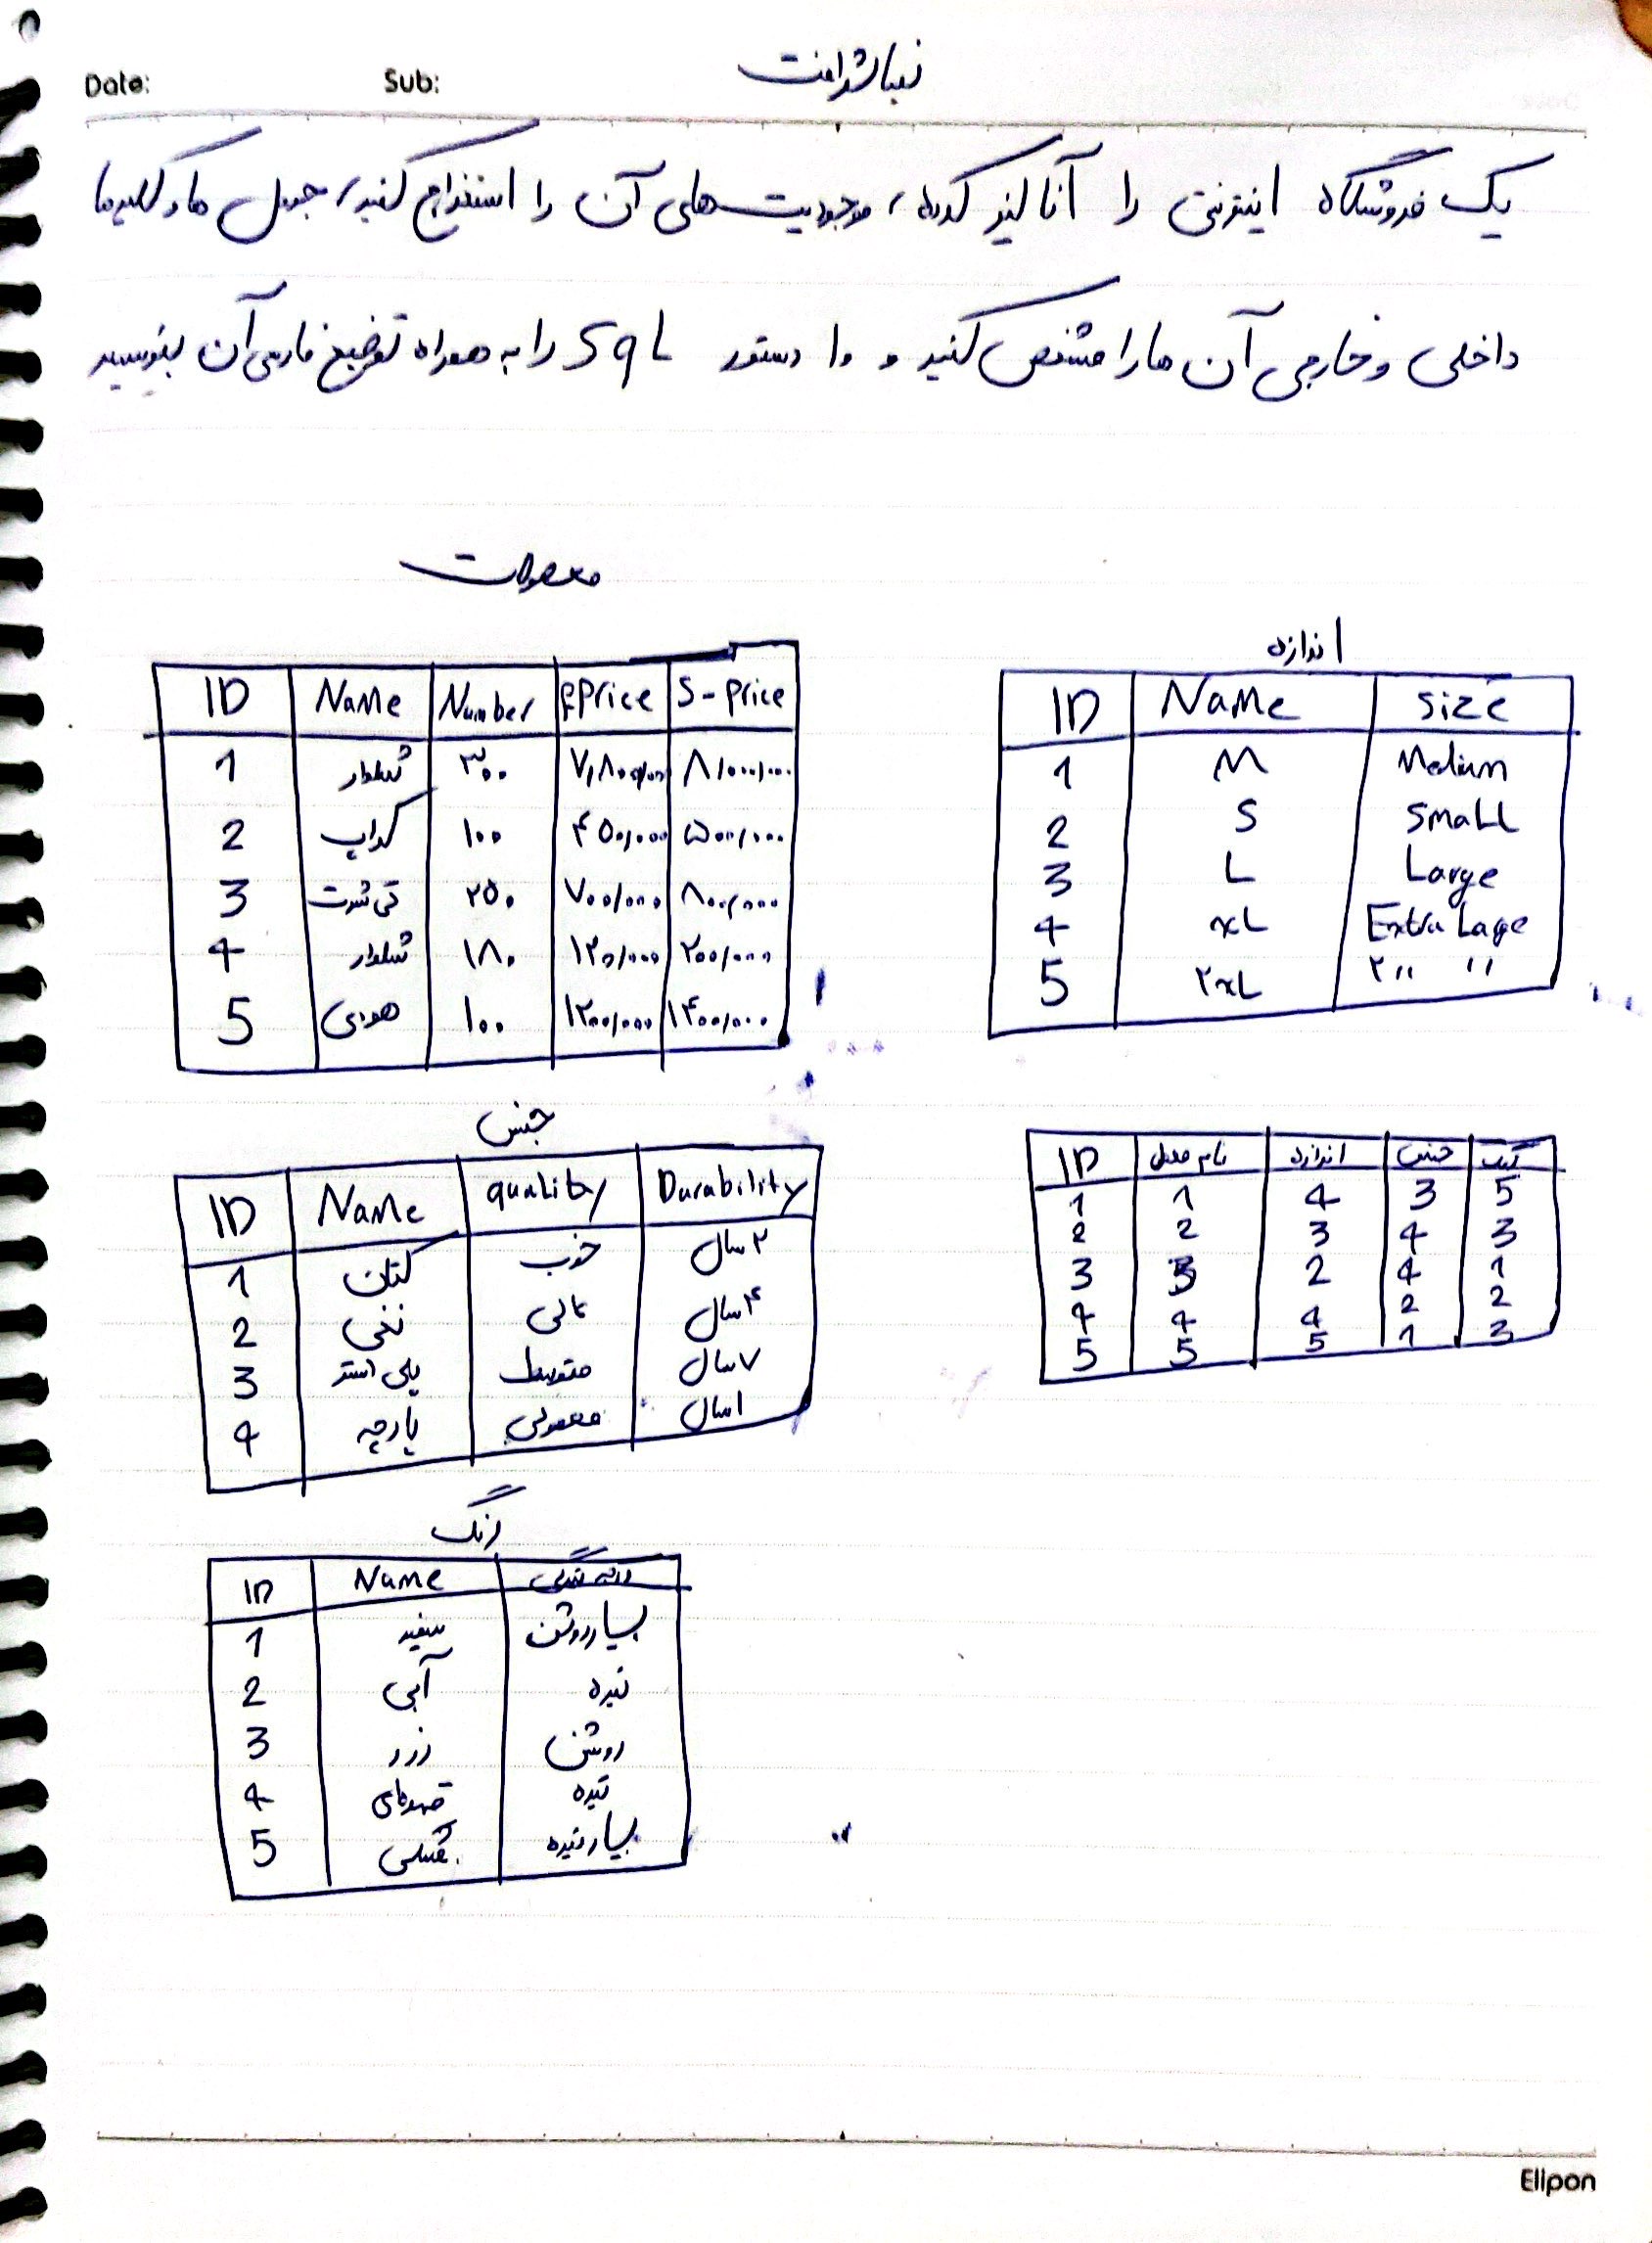 Date: Sub: نیما شرافت
یک فروشگاه اینترنتی را آنالیز کرده، موجودیت های آن را استخراج کنید، جدول ها و کلیدها
داخلی و خارجی آن ها را مشخص کنید و ۱۰ دستور SqL را به همراه توضیح فارسی آن بنویسید
محصولات
ID Name Number Price S-Price
1 شلوار ۳۰۰ ۷,۸۰۰,۰۰۰ ۸,۰۰۰,۰۰۰
2 کراپ ۱۰۰ ۴۵۰,۰۰۰ ۵۰۰,۰۰۰
3 تی شرت ۲۵۰ ۷۰۰,۰۰۰ ۸۰۰,۰۰۰
4 شلوار ۱۸۰ ۱۲۰,۰۰۰ ۲۰۰,۰۰۰
5 هودی ۱۰۰ ۱۲۰۰,۰۰۰ ۱۴۰۰,۰۰۰
اندازه
ID Name Size
1 M Medium
2 S SmaLL
3 L Large
4 xL Extra Lage
5 ۲xL ۲ " "
جنس
ID Name quality Durability
1 کتان خوب ۲ سال
2 نخی عالی ۴ سال
3 پلی استر متوسط ۷ سال
4 پارچه معمولی ۱ سال
ID نام مدل اندازه جنس رنگ
1 1 4 3 5
2 2 3 4 3
3 3 2 4 1
4 4 4 2 2
5 5 5 1 3
رنگ
ID Name
1 سفید بسیار روشن
2 آبی تیره
3 زرد روشن
4 قهوه‌ای تیره
5 مشکی بسیار تیره
Elipon